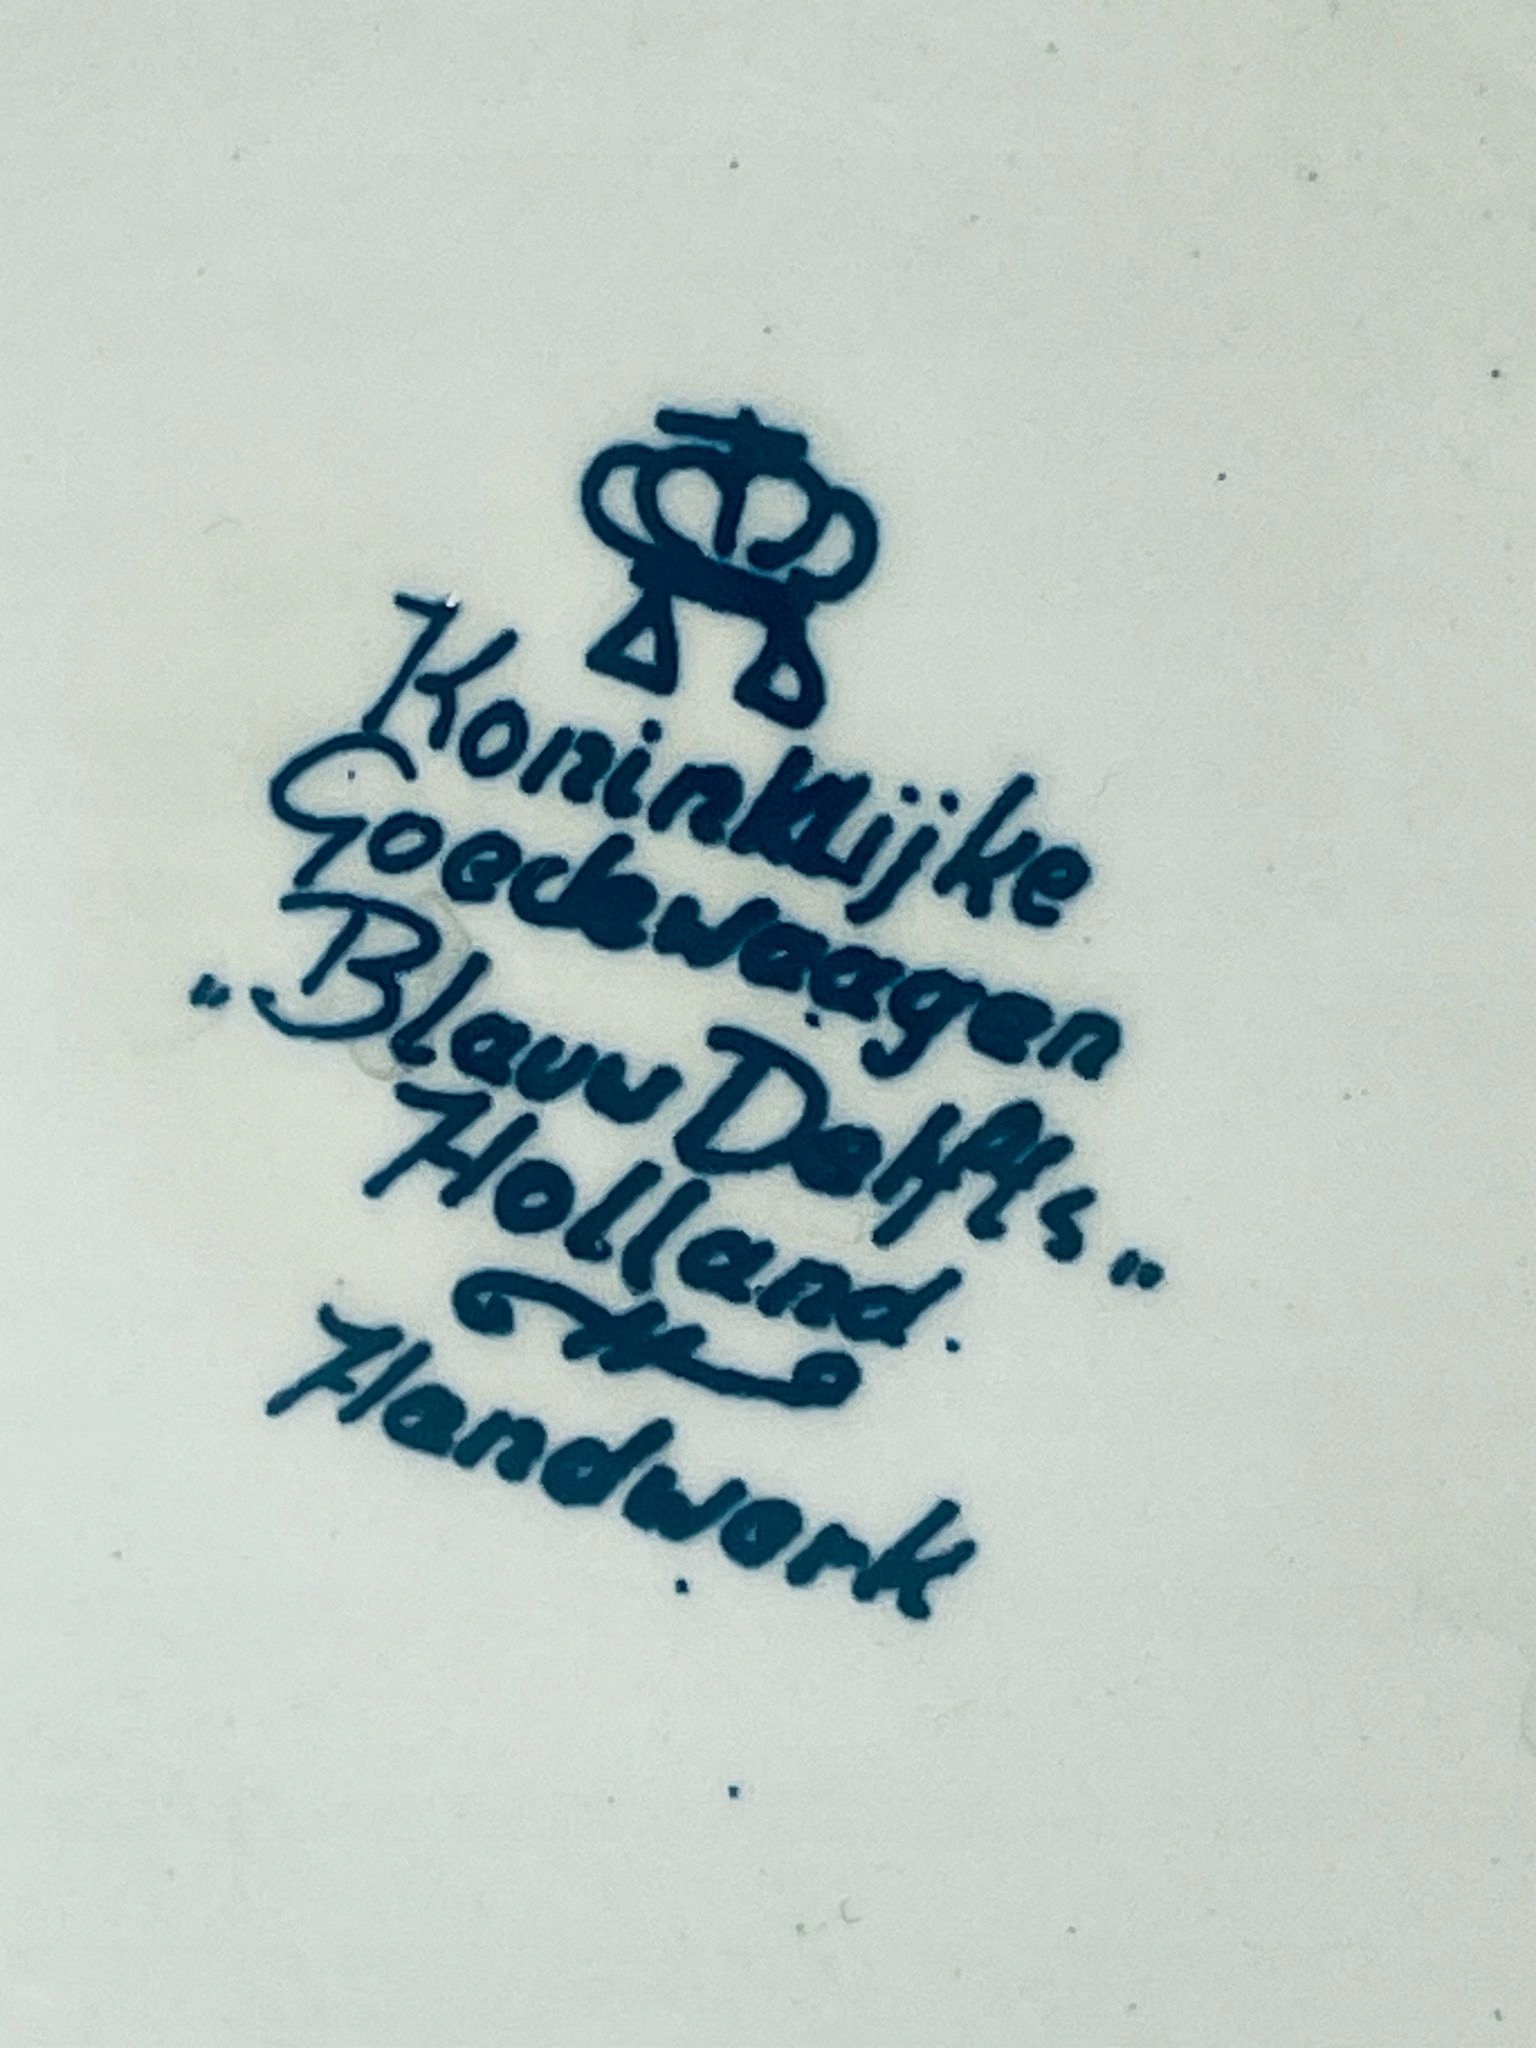 Koninklijke
Goedewaagen
"Blauw Delfts"
Holland.
Handwerk